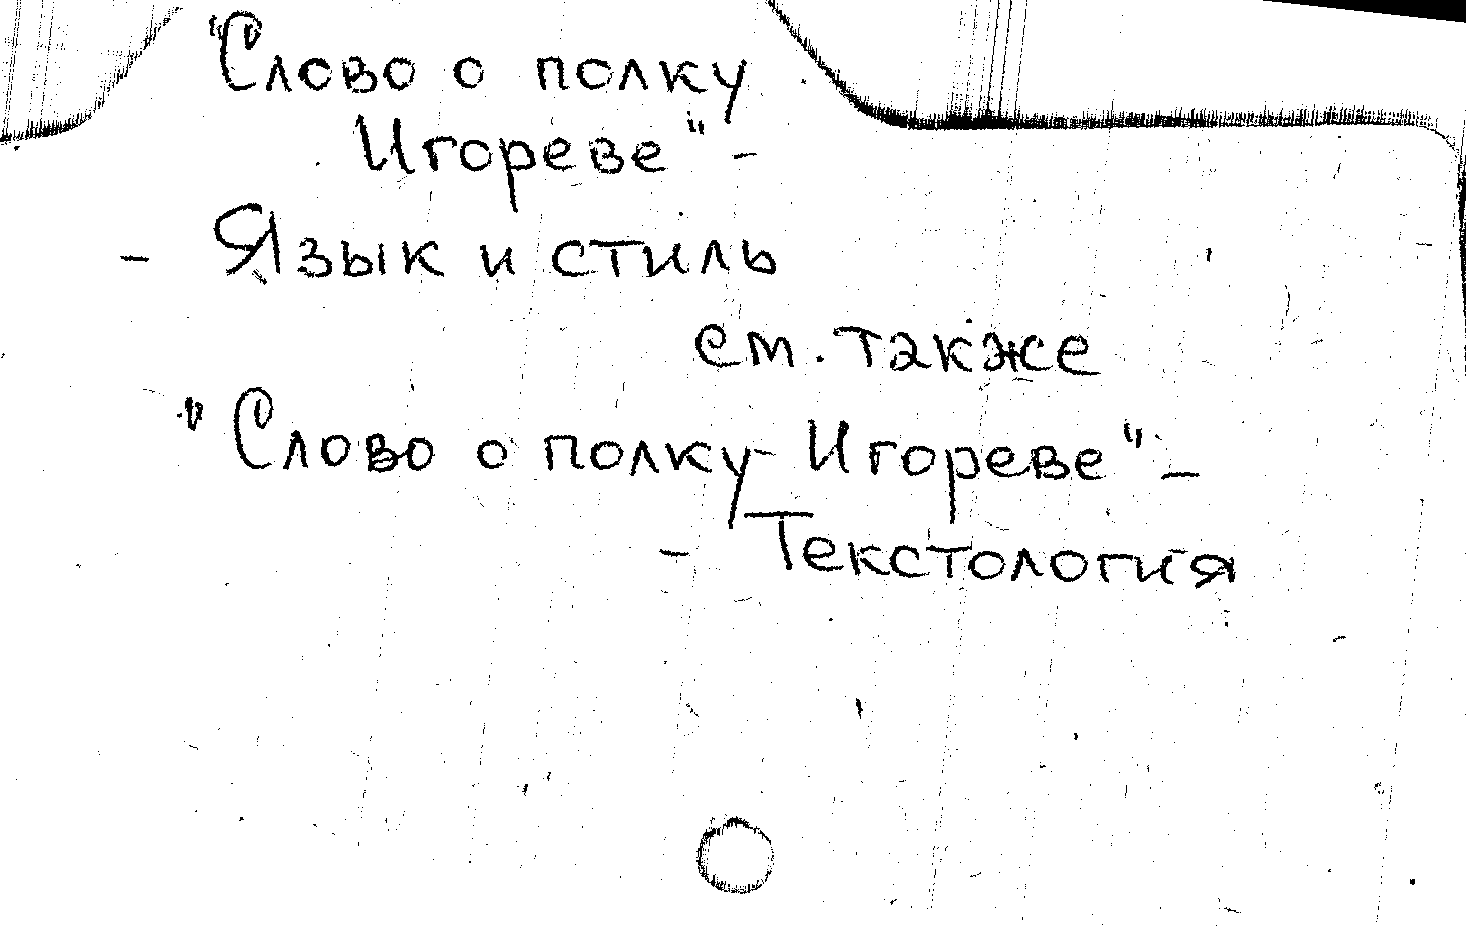 "Слово о полку
Игореве" -
- Язык и стиль
см. также
"Слово о полку Игореве" -
- Текстология